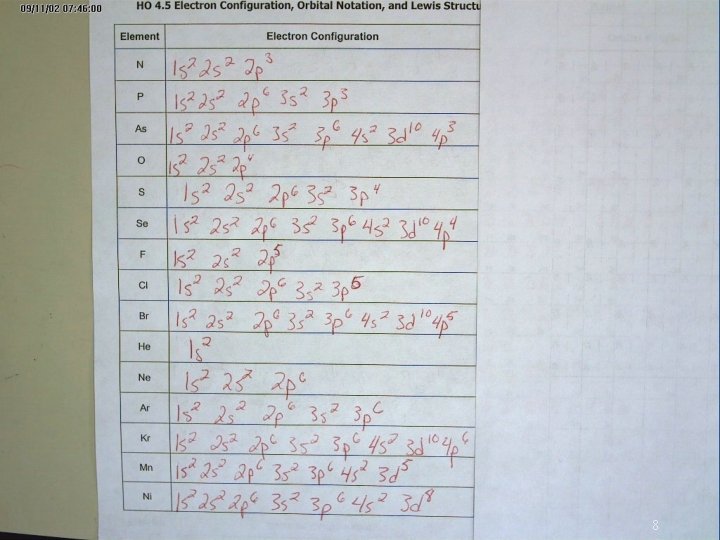 09/11/02 07:46:00
HO 4.5 Electron Configuration, Orbital Notation, and Lewis Structu
Element Electron Configuration
N 1s² 2s² 2p³
P 1s² 2s² 2p⁶ 3s² 3p³
As 1s² 2s² 2p⁶ 3s² 3p⁶ 4s² 3d¹⁰ 4p³
O 1s² 2s² 2p⁴
S 1s² 2s² 2p⁶ 3s² 3p⁴
Se 1s² 2s² 2p⁶ 3s² 3p⁶ 4s² 3d¹⁰ 4p⁴
F 1s² 2s² 2p⁵
Cl 1s² 2s² 2p⁶ 3s² 3p⁵
Br 1s² 2s² 2p⁶ 3s² 3p⁶ 4s² 3d¹⁰ 4p⁵
He 1s²
Ne 1s² 2s² 2p⁶
Ar 1s² 2s² 2p⁶ 3s² 3p⁶
Kr 1s² 2s² 2p⁶ 3s² 3p⁶ 4s² 3d¹⁰ 4p⁶
Mn 1s² 2s² 2p⁶ 3s² 3p⁶ 4s² 3d⁵
Ni 1s² 2s² 2p⁶ 3s² 3p⁶ 4s² 3d⁸
8